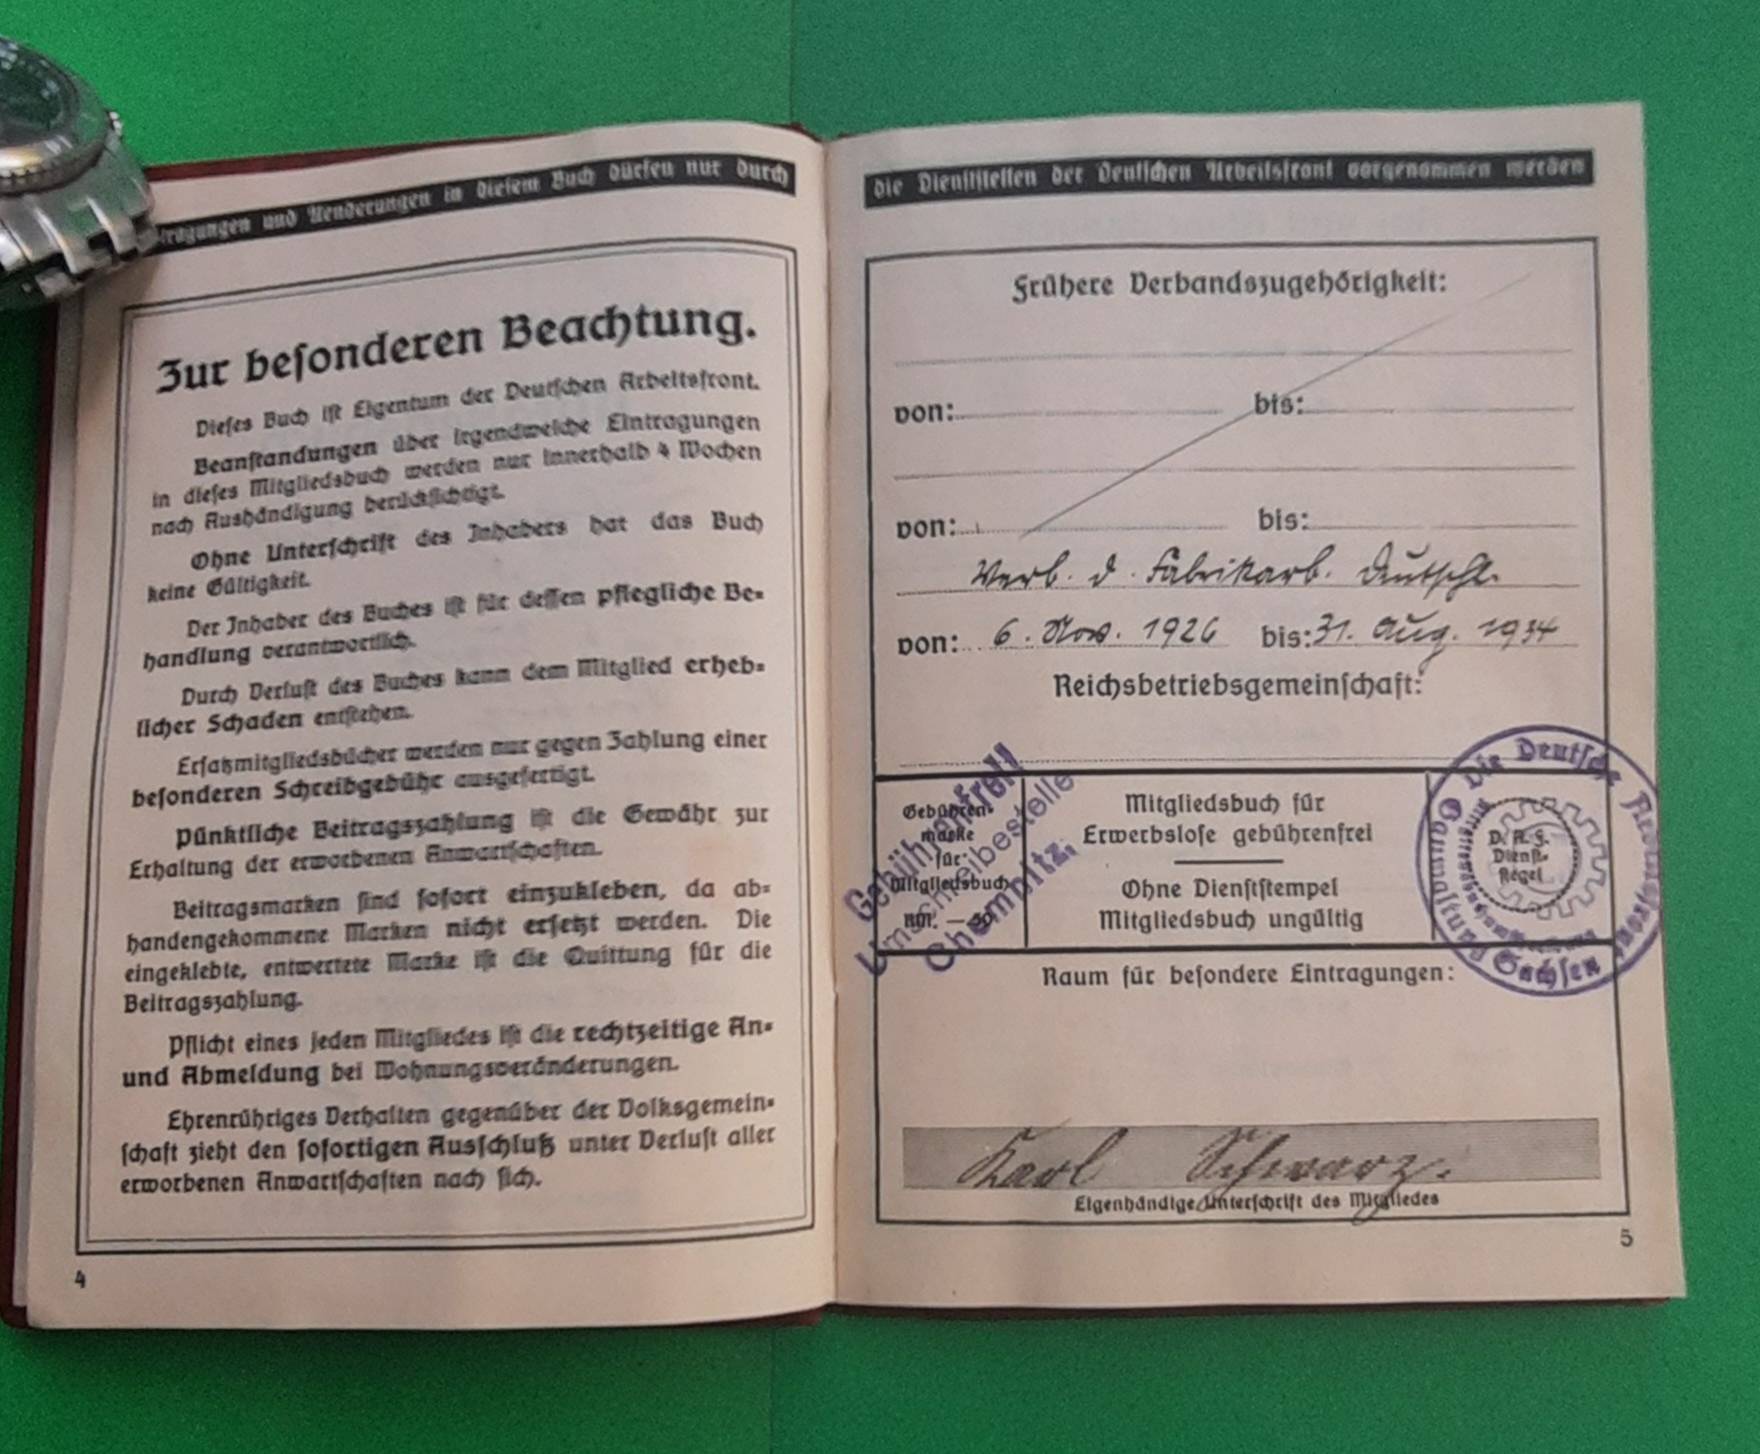 tragungen und Aenderungen in diesem Buch dürfen nur durch
Zur besonderen Beachtung.
Dieses Buch ist Eigentum der Deutschen Arbeitsfront.
Beanstandungen über irgendwelche Eintragungen
in dieses Mitgliedsbuch werden nur innerhalb 4 Wochen
nach Aushändigung berücksichtigt.
Ohne Unterschrift des Inhabers hat das Buch
keine Gültigkeit.
Der Inhaber des Buches ist für dessen pflegliche Be-
handlung verantwortlich.
Durch Verlust des Buches kann dem Mitglied erheb-
licher Schaden entstehen.
Ersatzmitgliedsbücher werden nur gegen Zahlung einer
besonderen Schreibgebühr ausgefertigt.
Pünktliche Beitragszahlung ist die Gewähr zur
Erhaltung der erworbenen Anwartschaften.
Beitragsmarken sind sofort einzukleben, da ab-
handengekommene Marken nicht ersetzt werden. Die
eingeklebte, entwertete Marke ist die Quittung für die
Beitragszahlung.
Pflicht eines jeden Mitgliedes ist die rechtzeitige An-
und Abmeldung bei Wohnungsveränderungen.
Ehrenrühriges Verhalten gegenüber der Volksgemein-
schaft zieht den sofortigen Ausschluß unter Verlust aller
erworbenen Anwartschaften nach sich.
4
die Dienststellen der Deutschen Arbeitsfront vorgenommen werden
Frühere Verbandszugehörigkeit:
von: bis:
von: bis:
Verb. d. Fabrikarb. Deutschl.
von: 6. Nov. 1926 bis: 31. Aug. 1934
Reichsbetriebsgemeinschaft:
Gebühren-
marke
für
Mitgliedsbuch
RM. —.50
Gebührenfrei!
Umschreibestelle
Chemnitz.
Mitgliedsbuch für
Erwerbslose gebührenfrei
Ohne Dienststempel
Mitgliedsbuch ungültig
Die Deutsche Arbeitsfront
Gauwaltung Sachsen
D.A.F.
Dienst-
siegel
Raum für besondere Eintragungen:
Karl Schwarz.
Eigenhändige Unterschrift des Mitgliedes
5